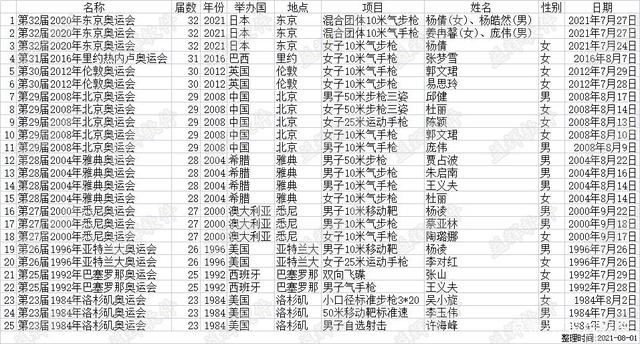 名称 届数 年份 举办国 地点 项目 姓名 性别 日期
1 第32届2020年东京奥运会 32 2021 日本 东京 混合团体10米气步枪 杨倩(女)、杨皓然(男) 2021年7月27日
2 第32届2020年东京奥运会 32 2021 日本 东京 混合团体10米气手枪 姜冉馨(女)、庞伟(男) 2021年7月27日
3 第32届2020年东京奥运会 32 2021 日本 东京 女子10米气步枪 杨倩 女 2021年7月24日
4 第31届2016年里约热内卢奥运会 31 2016 巴西 里约 女子10米气手枪 张梦雪 女 2016年8月7日
5 第30届2012年伦敦奥运会 30 2012 英国 伦敦 女子10米气手枪 郭文珺 女 2012年7月29日
6 第30届2012年伦敦奥运会 30 2012 英国 伦敦 女子10米气步枪 易思玲 女 2012年7月28日
7 第29届2008年北京奥运会 29 2008 中国 北京 男子50米步枪三姿 邱健 男 2008年8月17日
8 第29届2008年北京奥运会 29 2008 中国 北京 女子50米步枪三姿 杜丽 女 2008年8月14日
9 第29届2008年北京奥运会 29 2008 中国 北京 女子25米运动手枪 陈颖 女 2008年8月13日
10 第29届2008年北京奥运会 29 2008 中国 北京 女子10米气手枪 郭文珺 女 2008年8月10日
11 第29届2008年北京奥运会 29 2008 中国 北京 男子10米气手枪 庞伟 男 2008年8月9日
12 第28届2004年雅典奥运会 28 2004 希腊 雅典 男子50米步枪 贾占波 男 2004年8月22日
13 第28届2004年雅典奥运会 28 2004 希腊 雅典 男子10米气步枪 朱启南 男 2004年8月16日
14 第28届2004年雅典奥运会 28 2004 希腊 雅典 男子10米气手枪 王义夫 男 2004年8月14日
15 第28届2004年雅典奥运会 28 2004 希腊 雅典 女子10米气步枪 杜丽 女 2004年8月14日
16 第27届2000年悉尼奥运会 27 2000 澳大利亚 悉尼 男子10米移动靶 杨凌 男 2000年9月22日
17 第27届2000年悉尼奥运会 27 2000 澳大利亚 悉尼 男子10米气步枪 蔡亚林 男 2000年9月18日
18 第27届2000年悉尼奥运会 27 2000 澳大利亚 悉尼 女子10米气手枪 陶璐娜 女 2000年9月17日
19 第26届1996年亚特兰大奥运会 26 1996 美国 亚特兰大 男子10米移动靶 杨凌 男 1996年7月26日
20 第26届1996年亚特兰大奥运会 26 1996 美国 亚特兰大 女子25米运动手枪 李对红 女 1996年7月26日
21 第25届1992年巴塞罗那奥运会 25 1992 西班牙 巴塞罗那 双向飞碟 张山 女 1992年7月29日
22 第25届1992年巴塞罗那奥运会 25 1992 西班牙 巴塞罗那 男子气手枪 王义夫 男 1992年7月28日
23 第23届1984年洛杉矶奥运会 23 1984 美国 洛杉矶 小口径标准步枪3*20 吴小旋 女 1984年8月2日
24 第23届1984年洛杉矶奥运会 23 1984 美国 洛杉矶 50米移动靶标准速 李玉伟 男 1984年7月31日
25 第23届1984年洛杉矶奥运会 23 1984 美国 洛杉矶 男子自选射击 许海峰 男 1984年7月29日
整理时间:2021-08-01